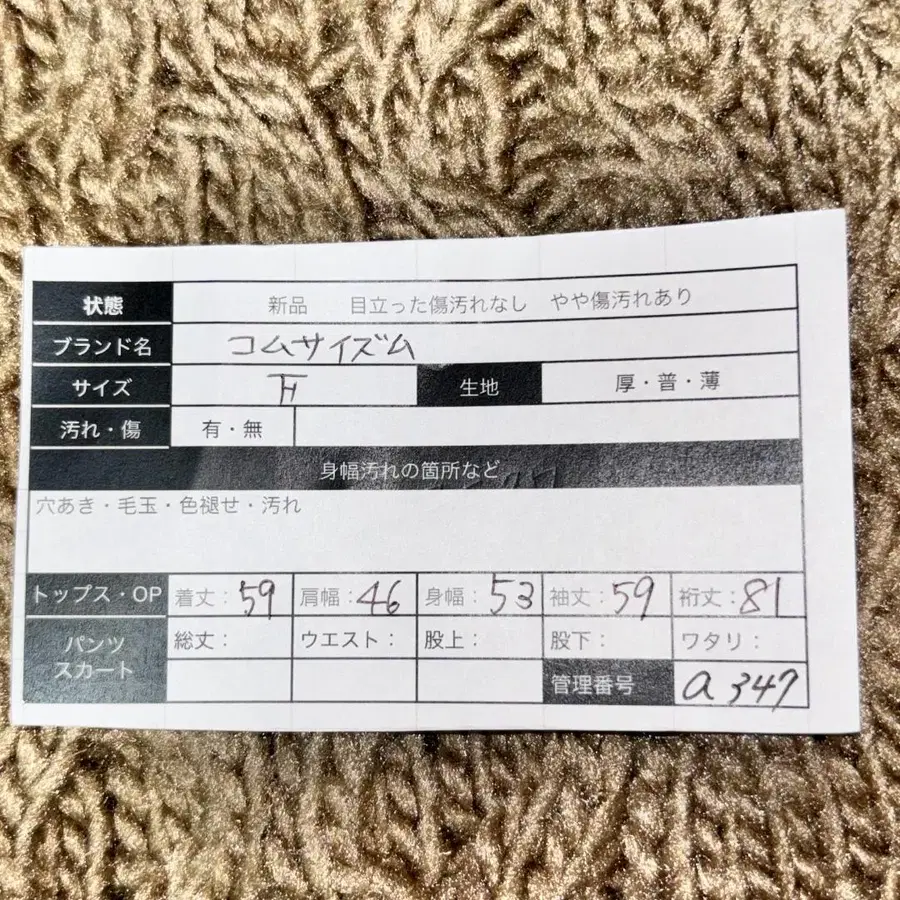 状態 新品 目立った傷汚れなし やや傷汚れあり
ブランド名 コムサイズム
サイズ 生地 厚・普・薄
汚れ・傷 有・無
身幅汚れの箇所など
穴あき・毛玉・色褪せ・汚れ
トップス・OP 着丈：59 肩幅：46 身幅：53 袖丈：59 裄丈：81
パンツ スカート 総丈： ウエスト： 股上： 股下： ワタリ：
管理番号 a347